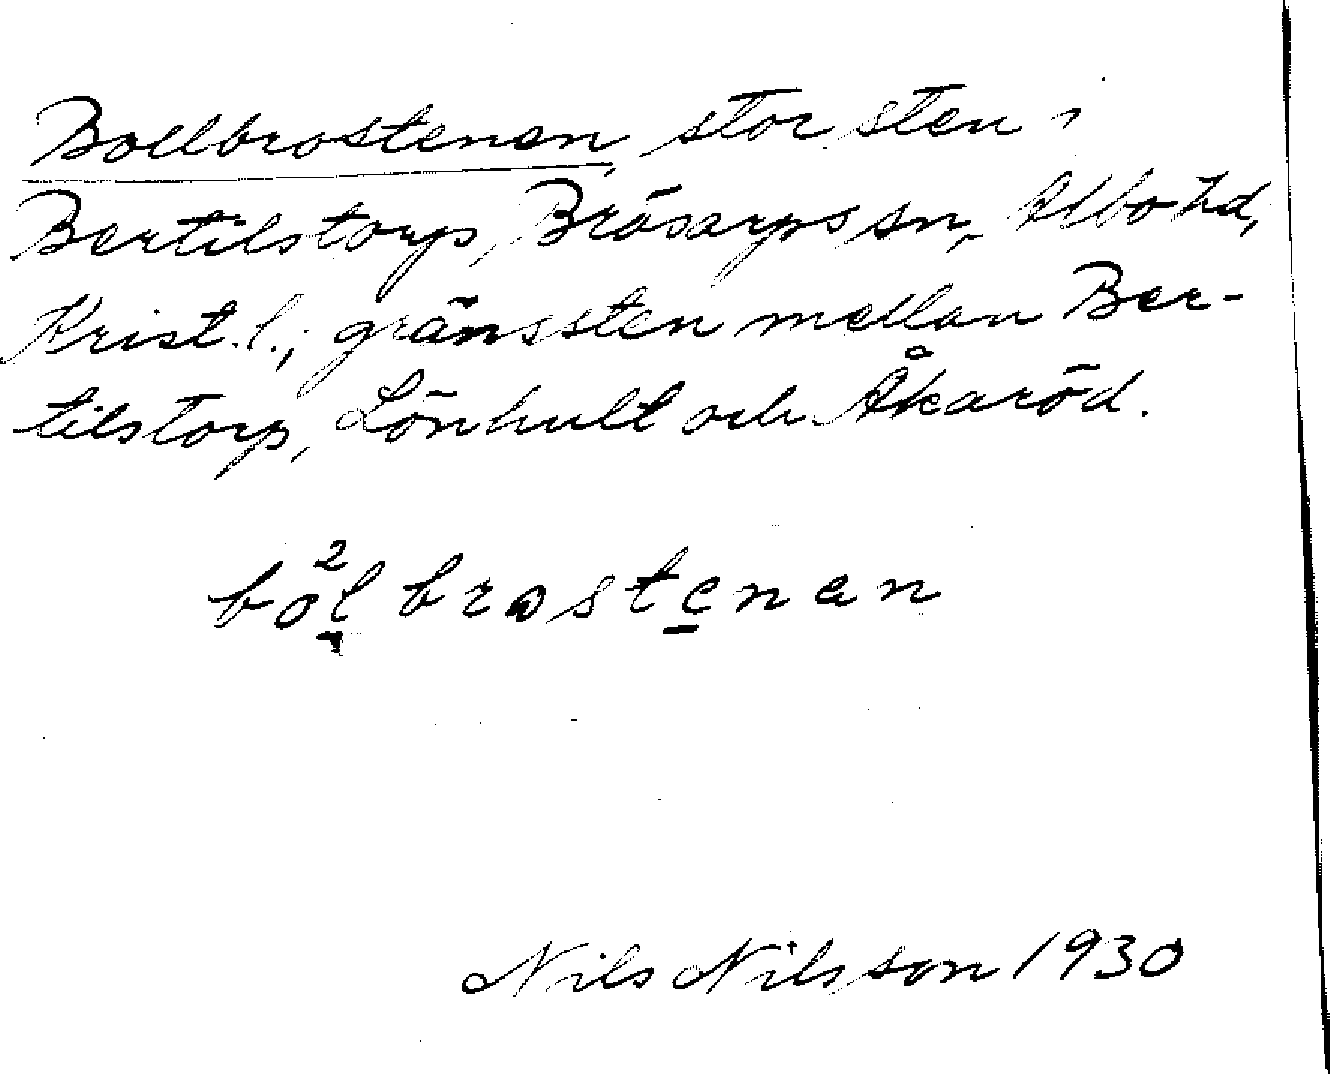 Bollbrostenen, stor sten i
Bertilstorp, Brösarps sn, Albo hd,
Krist. l.; gränssten mellan Ber-
tilstorp, Lönhult och Åkaröd.
bo²l brostenan
Nils Nilsson 1930